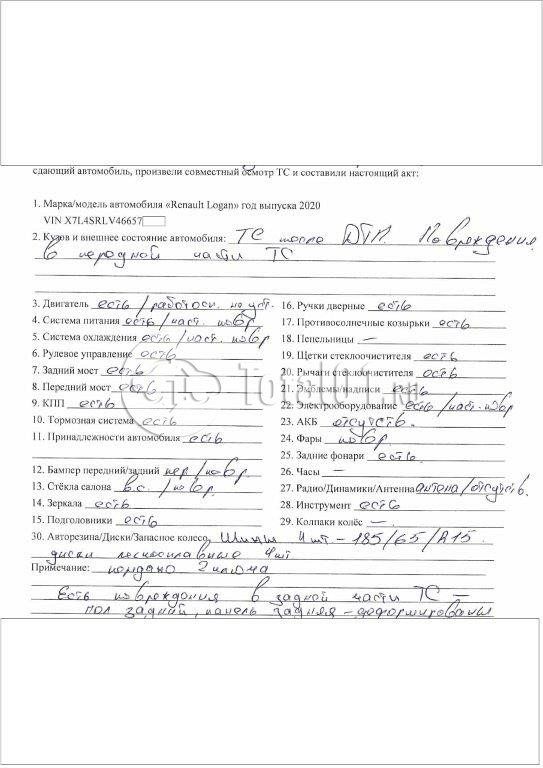 сдающий автомобиль, произвели совместный осмотр ТС и составили настоящий акт:
1. Марка/модель автомобиля «Renault Logan» год выпуска 2020
VIN X7L4SRLV46657
2. Кузов и внешнее состояние автомобиля: ТС после ДТП. Повреждения
в передней части ТС
3. Двигатель есть / работосп. не уст.
4. Система питания есть / част. повр
5. Система охлаждения есть / част. повр
6. Рулевое управление есть
7. Задний мост есть
8. Передний мост есть
9. КПП есть
10. Тормозная система есть
11. Принадлежности автомобиля есть
12. Бампер передний/задний пер / повр
13. Стёкла салона в.с. / повр.
14. Зеркала есть
15. Подголовники есть
16. Ручки дверные есть
17. Противосолнечные козырьки есть
18. Пепельницы —
19. Щетки стеклоочистителя есть
20. Рычаги стеклоочистителя есть
21. Эмблемы/надписи есть
22. Электрооборудование есть / част. повр
23. АКБ отсутств.
24. Фары повр.
25. Задние фонари есть
26. Часы —
27. Радио/Динамики/Антенна антена/отсутств.
28. Инструмент есть
29. Колпаки колёс —
30. Авторезина/Диски/Запасное колесо Шины 4шт – 185/65/R15.
диски легкосплавные 4шт
Примечание: передано 2 ключа
Есть повреждения в задней части ТС –
пол задний, панель задняя – деформированы